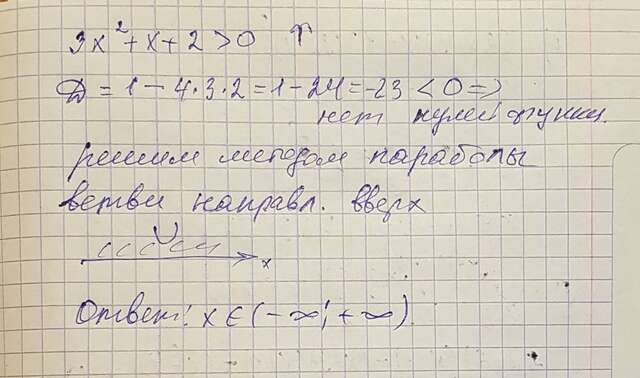 3x² + x + 2 > 0 ↑
D = 1 - 4·3·2 = 1 - 24 = -23 < 0 =>
нет нулей функц.
решим методом параболы
ветви направл. вверх
x
Ответ: x ∈ (-∞; +∞).